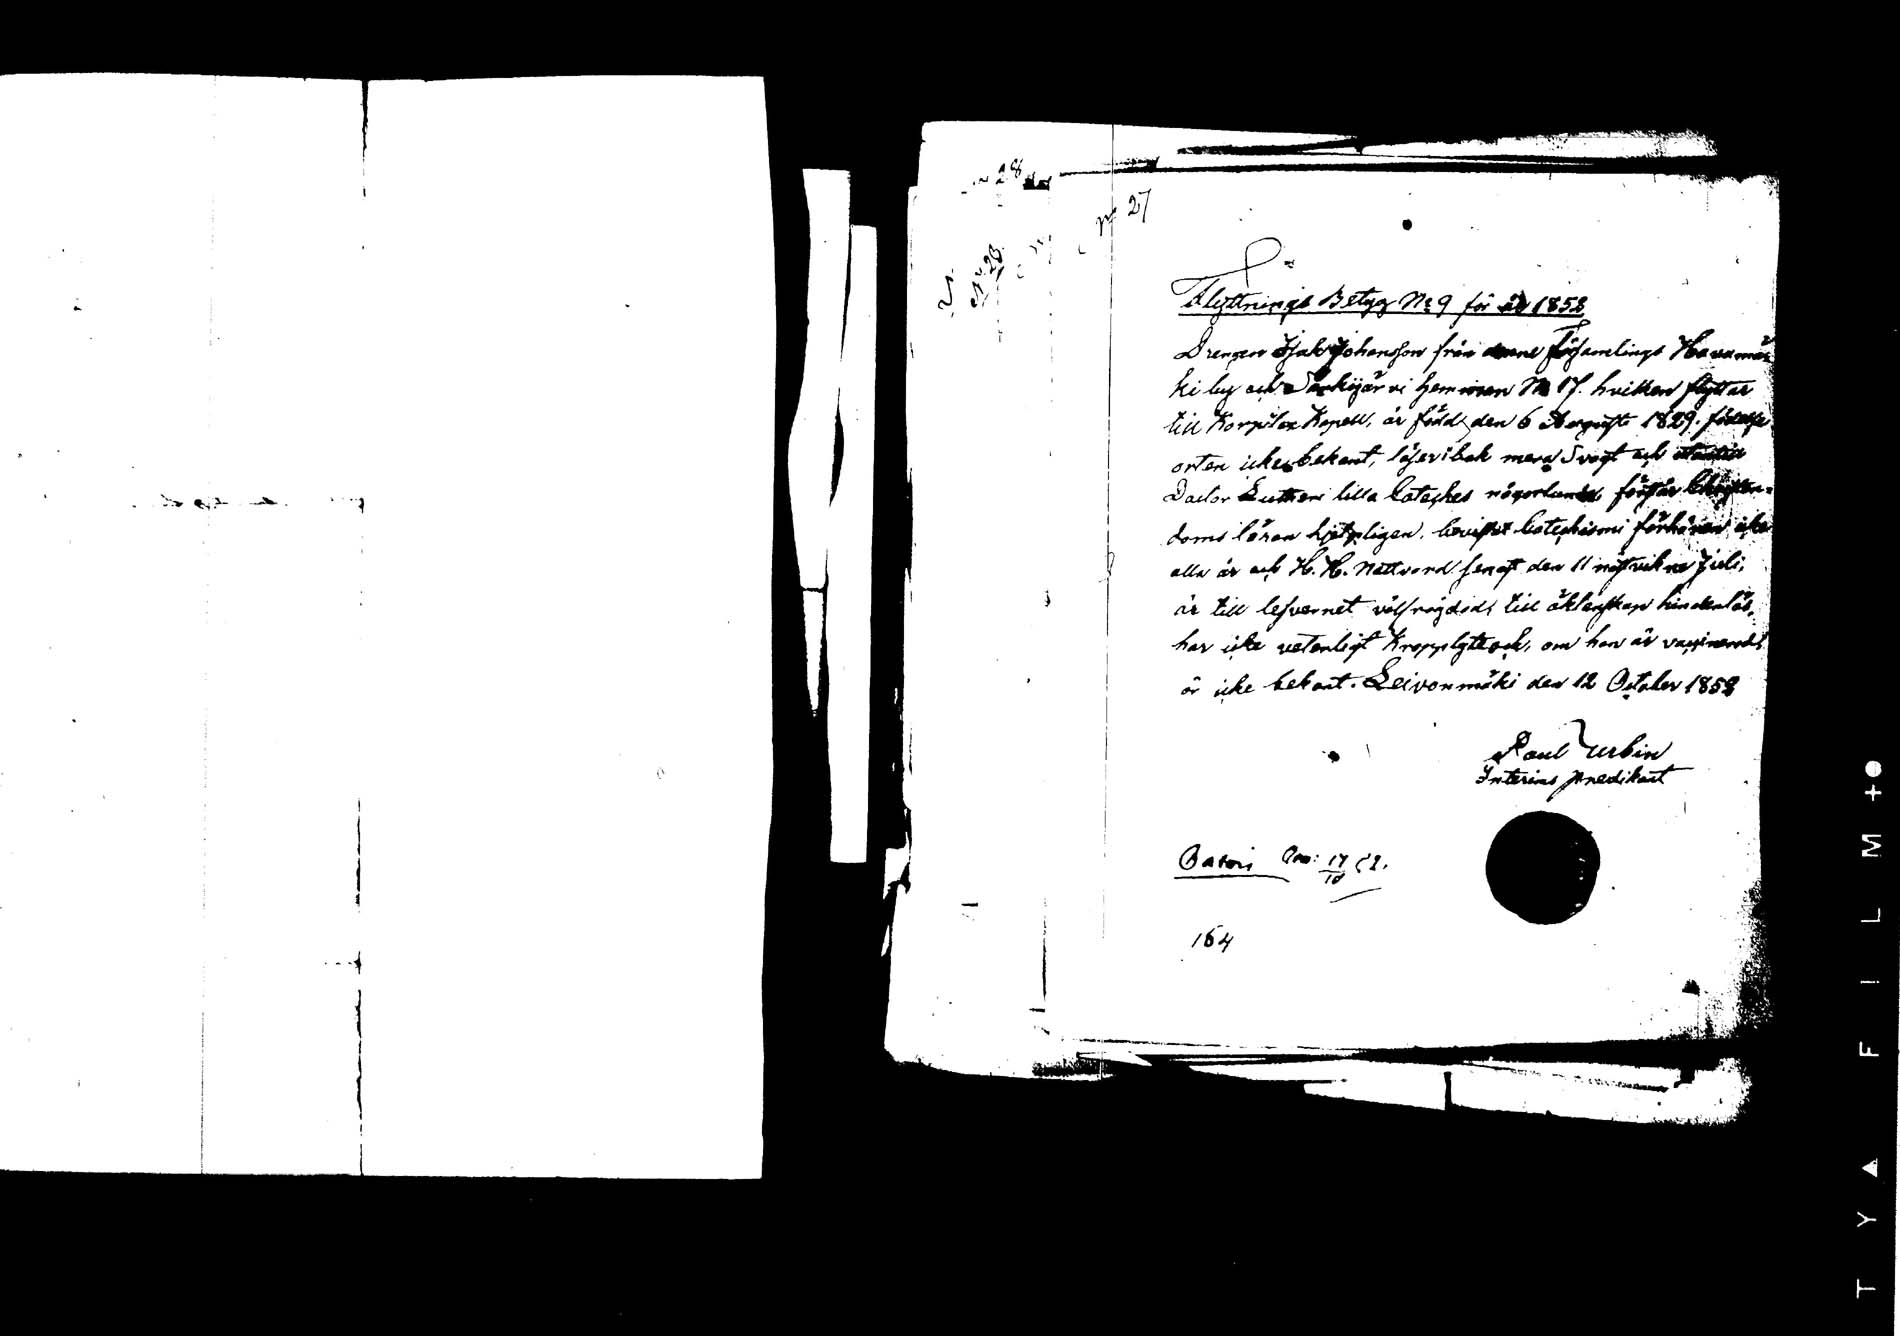 № 28
№ 27
№ 28
Flyttnings Betyg № 9 för år 1852
Drengen Isak Johansson från denne Församlings Havumäs
ki by och Särkijärvi hemman № 17. hvilken flyttar
till Korpilax Kapell, är född den 6 Augusti 1829. födelse
orten icke bekant, läser i bok mera svagt och utantill
Doctor Lutheri lilla Cateches någorlunda, förstår Christen-
doms läran hjelpligen, bevistat Catechismi förhören icke
alla år och H. H. Nattvard senast den 11 nästvikne Juli,
är till lefvernet välfrägdad, till äktenskap hinderlös,
har icke vetenligt kropplyte och, om han är vaccinerad,
är icke bekant. Leivonmäki den 12 October 1852
Paul Urbin
Interims predikant
17/10 52.
164
T Y F I L M